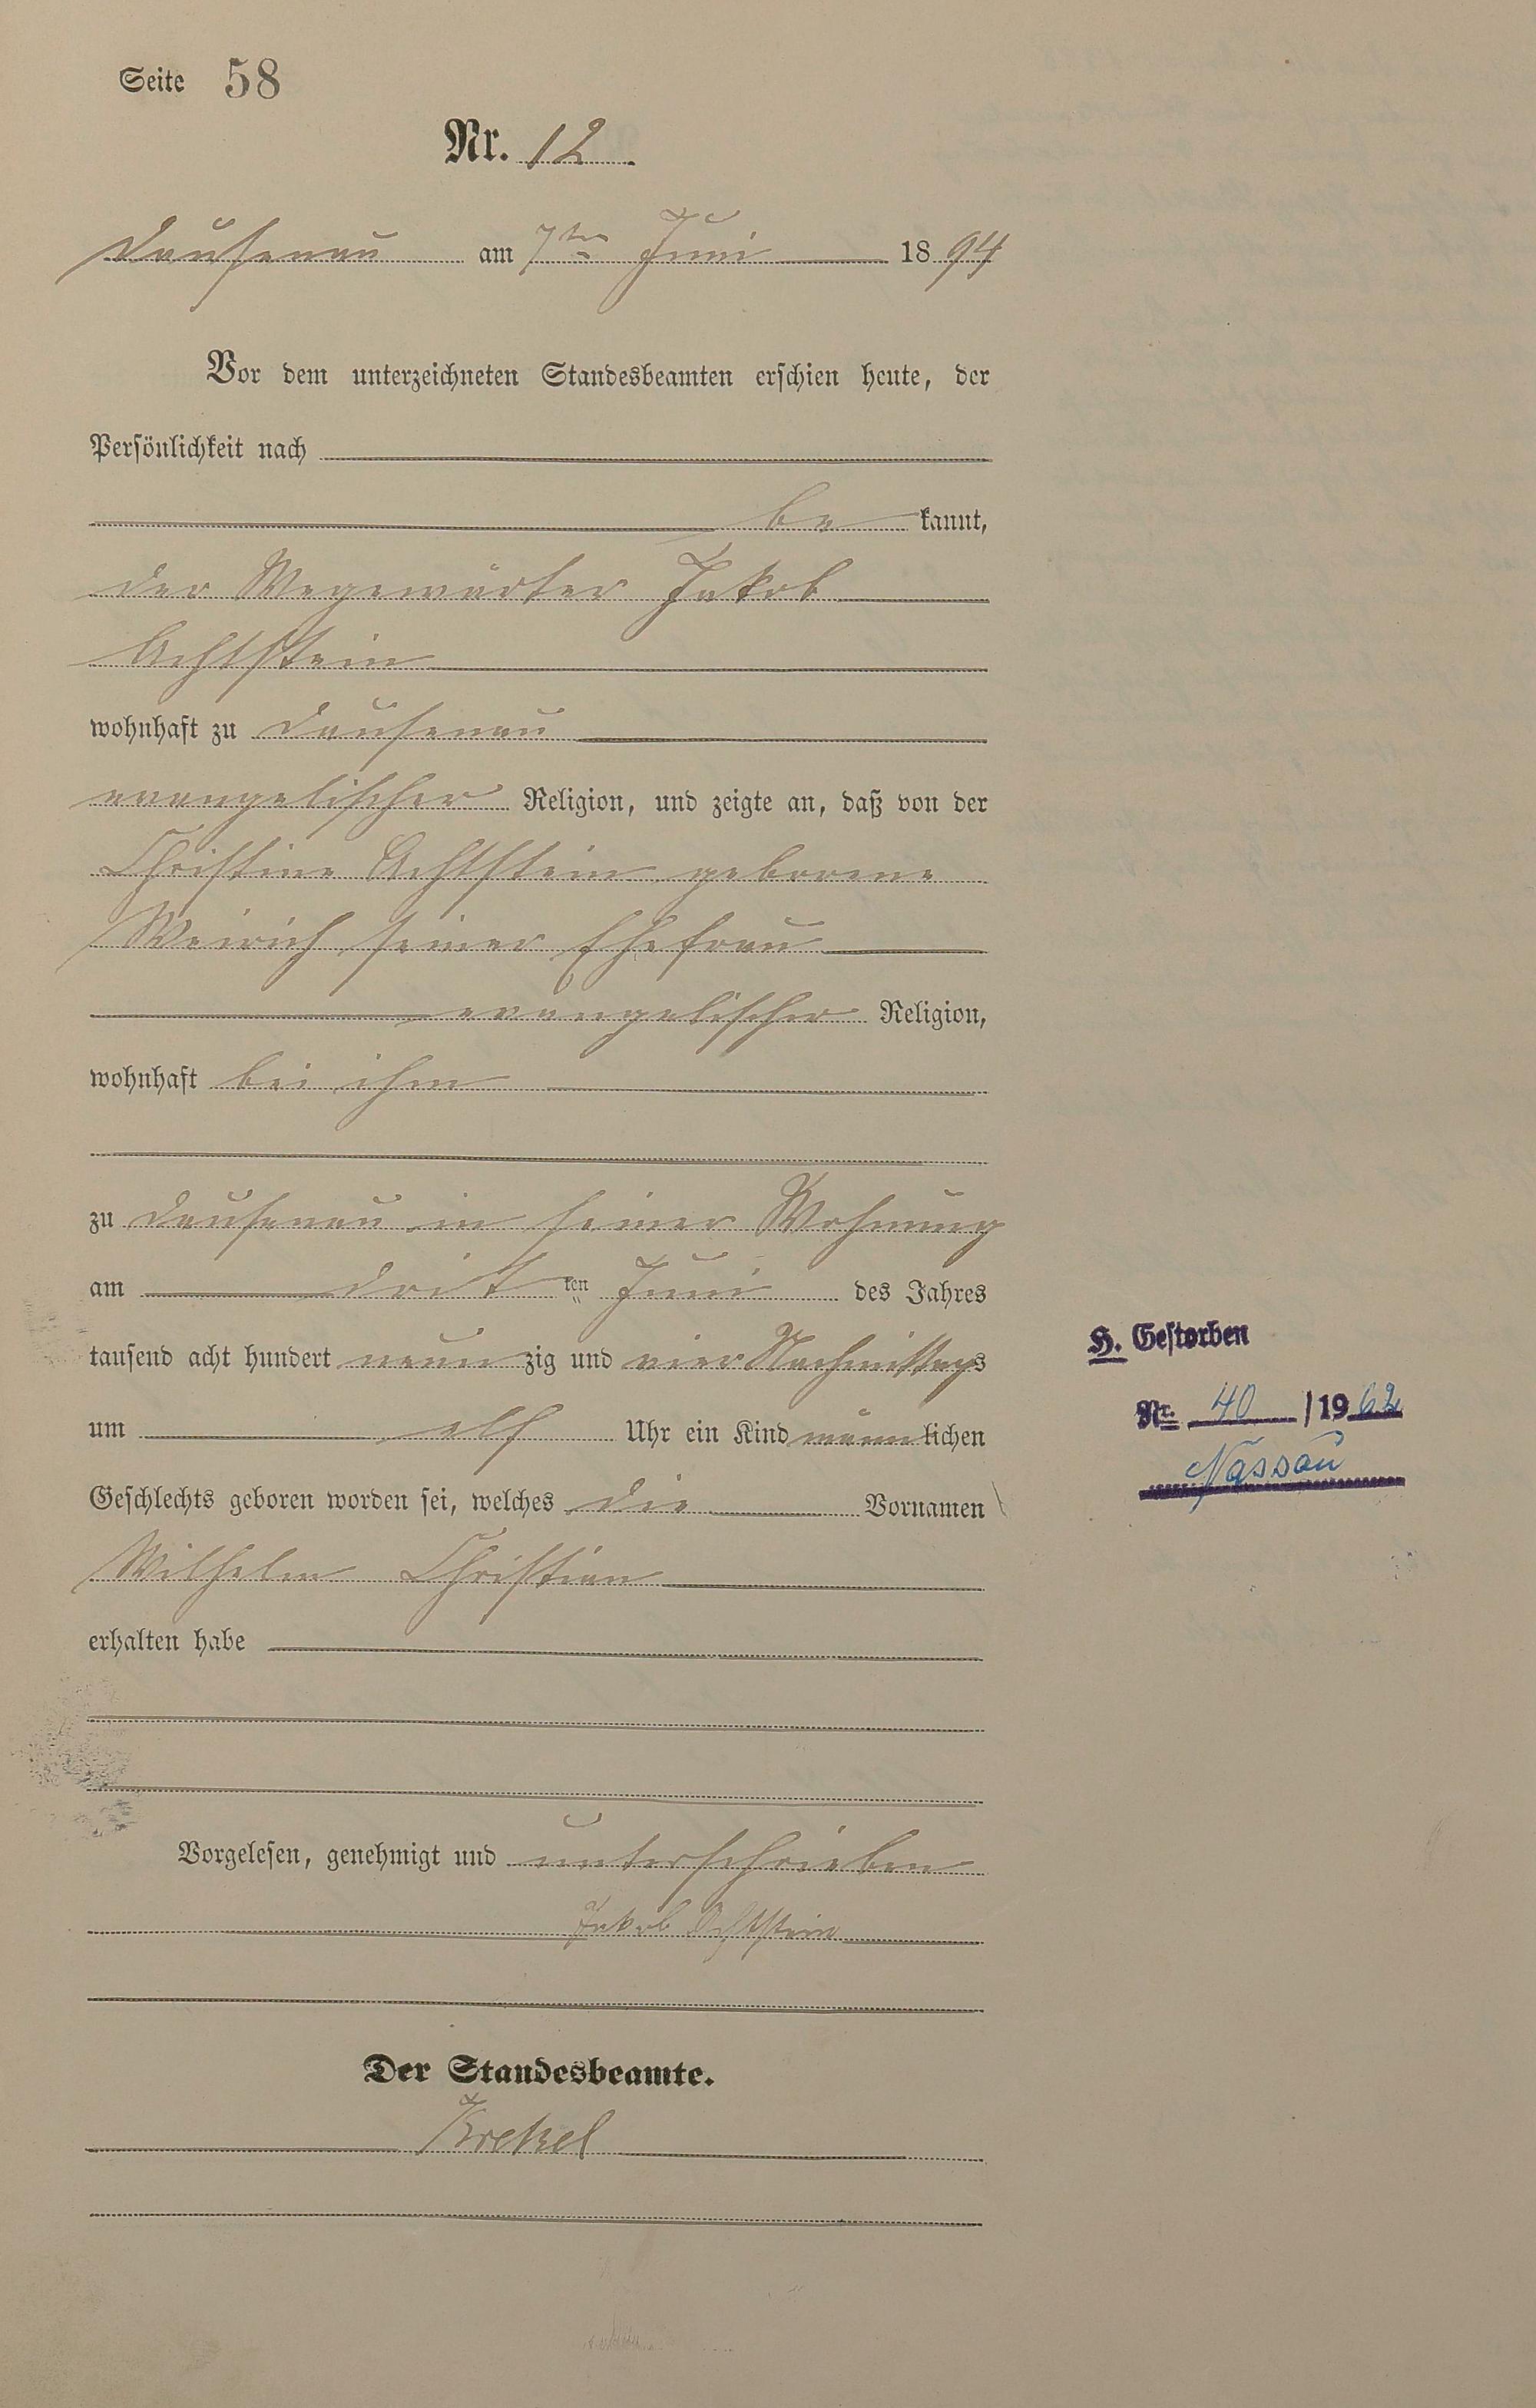 Seite 58
Nr. 12.
Dausenau am 7ten Juni 1894
Vor dem unterzeichneten Standesbeamten erschien heute, der
Persönlichkeit nach
be kannt,
der Wegewärter Jakob
Achtstein
wohnhaft zu Dausenau
evangelischer Religion, und zeigte an, daß von der
Christine Achtstein geborene
Weirich seiner Ehefrau
evangelischer Religion,
wohnhaft bei ihm
zu Dausenau in seiner Wohnung
am dritten Juni des Jahres
tausend acht hundert neunzig und vier Nachmittags
um elf Uhr ein Kind männlichen
Geschlechts geboren worden sei, welches die Vornamen
Wilhelm Christian
erhalten habe
H. Gestorben
Nr. 40 /1962
Nassau
Vorgelesen, genehmigt und unterschrieben
Jakob Achtstein
Der Standesbeamte.
Krekel